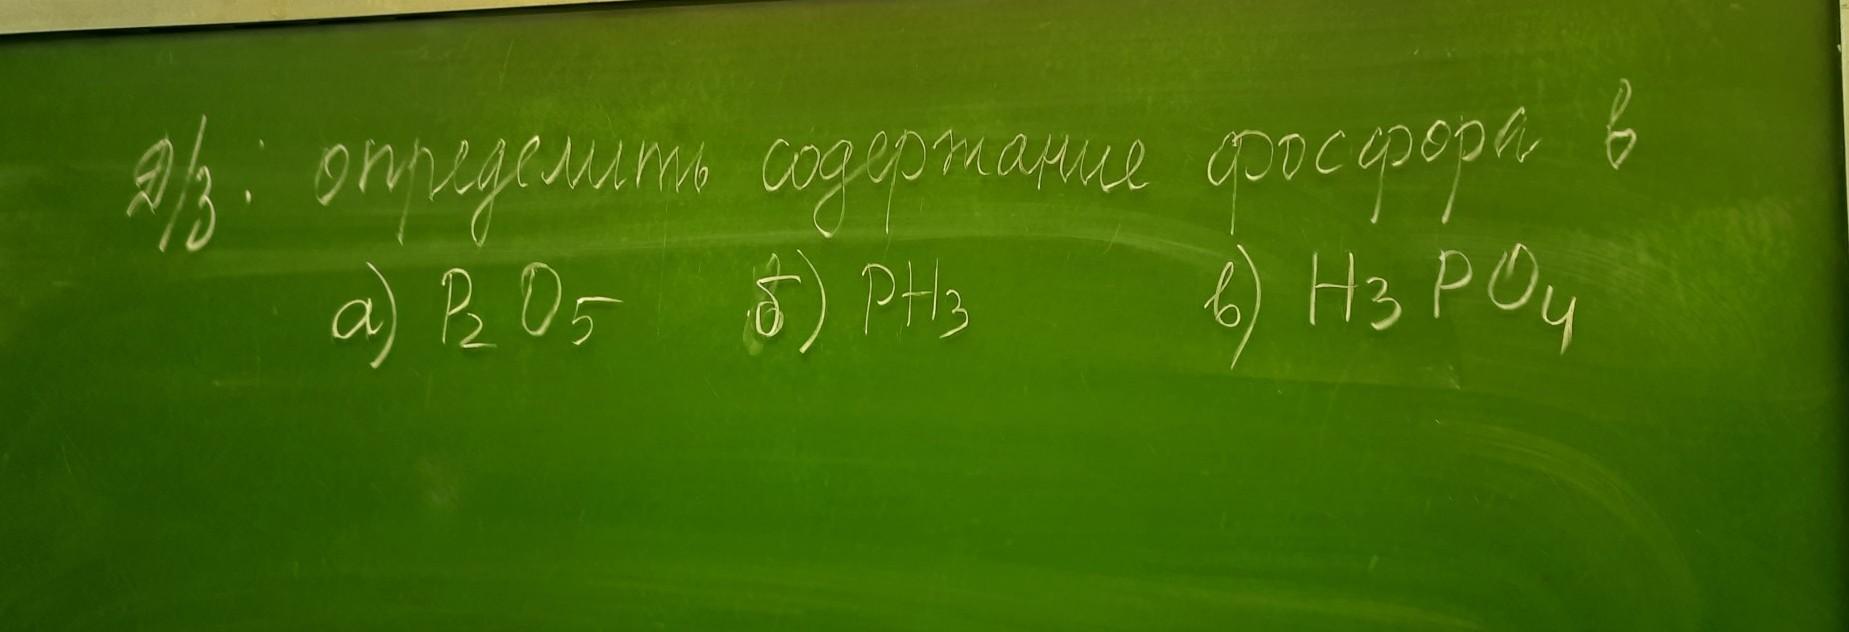 Д/з: определить содержание фосфора в
а) P₂O₅ б) PH₃ в) H₃PO₄